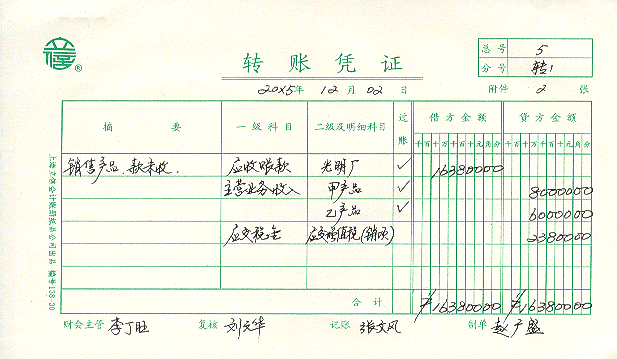 立信®
转账凭证
总号 5
分号 转1
20X5年 12月 02日
附件 2 张
摘要 一级科目 二级及明细科目 过账 借方金额 贷方金额
千百十万千百十元角分 千百十万千百十元角分
销售产品、款未收。 应收账款 光明厂 ✓ 16380000
主营业务收入 甲产品 ✓ 8000000
乙产品 ✓ 6000000
应交税金 应交增值税(销项) 2380000
合计 ¥16380000 ¥16380000
财会主管 李丁旺 复核 刘元华 记账 张文风 制单 赵广盛